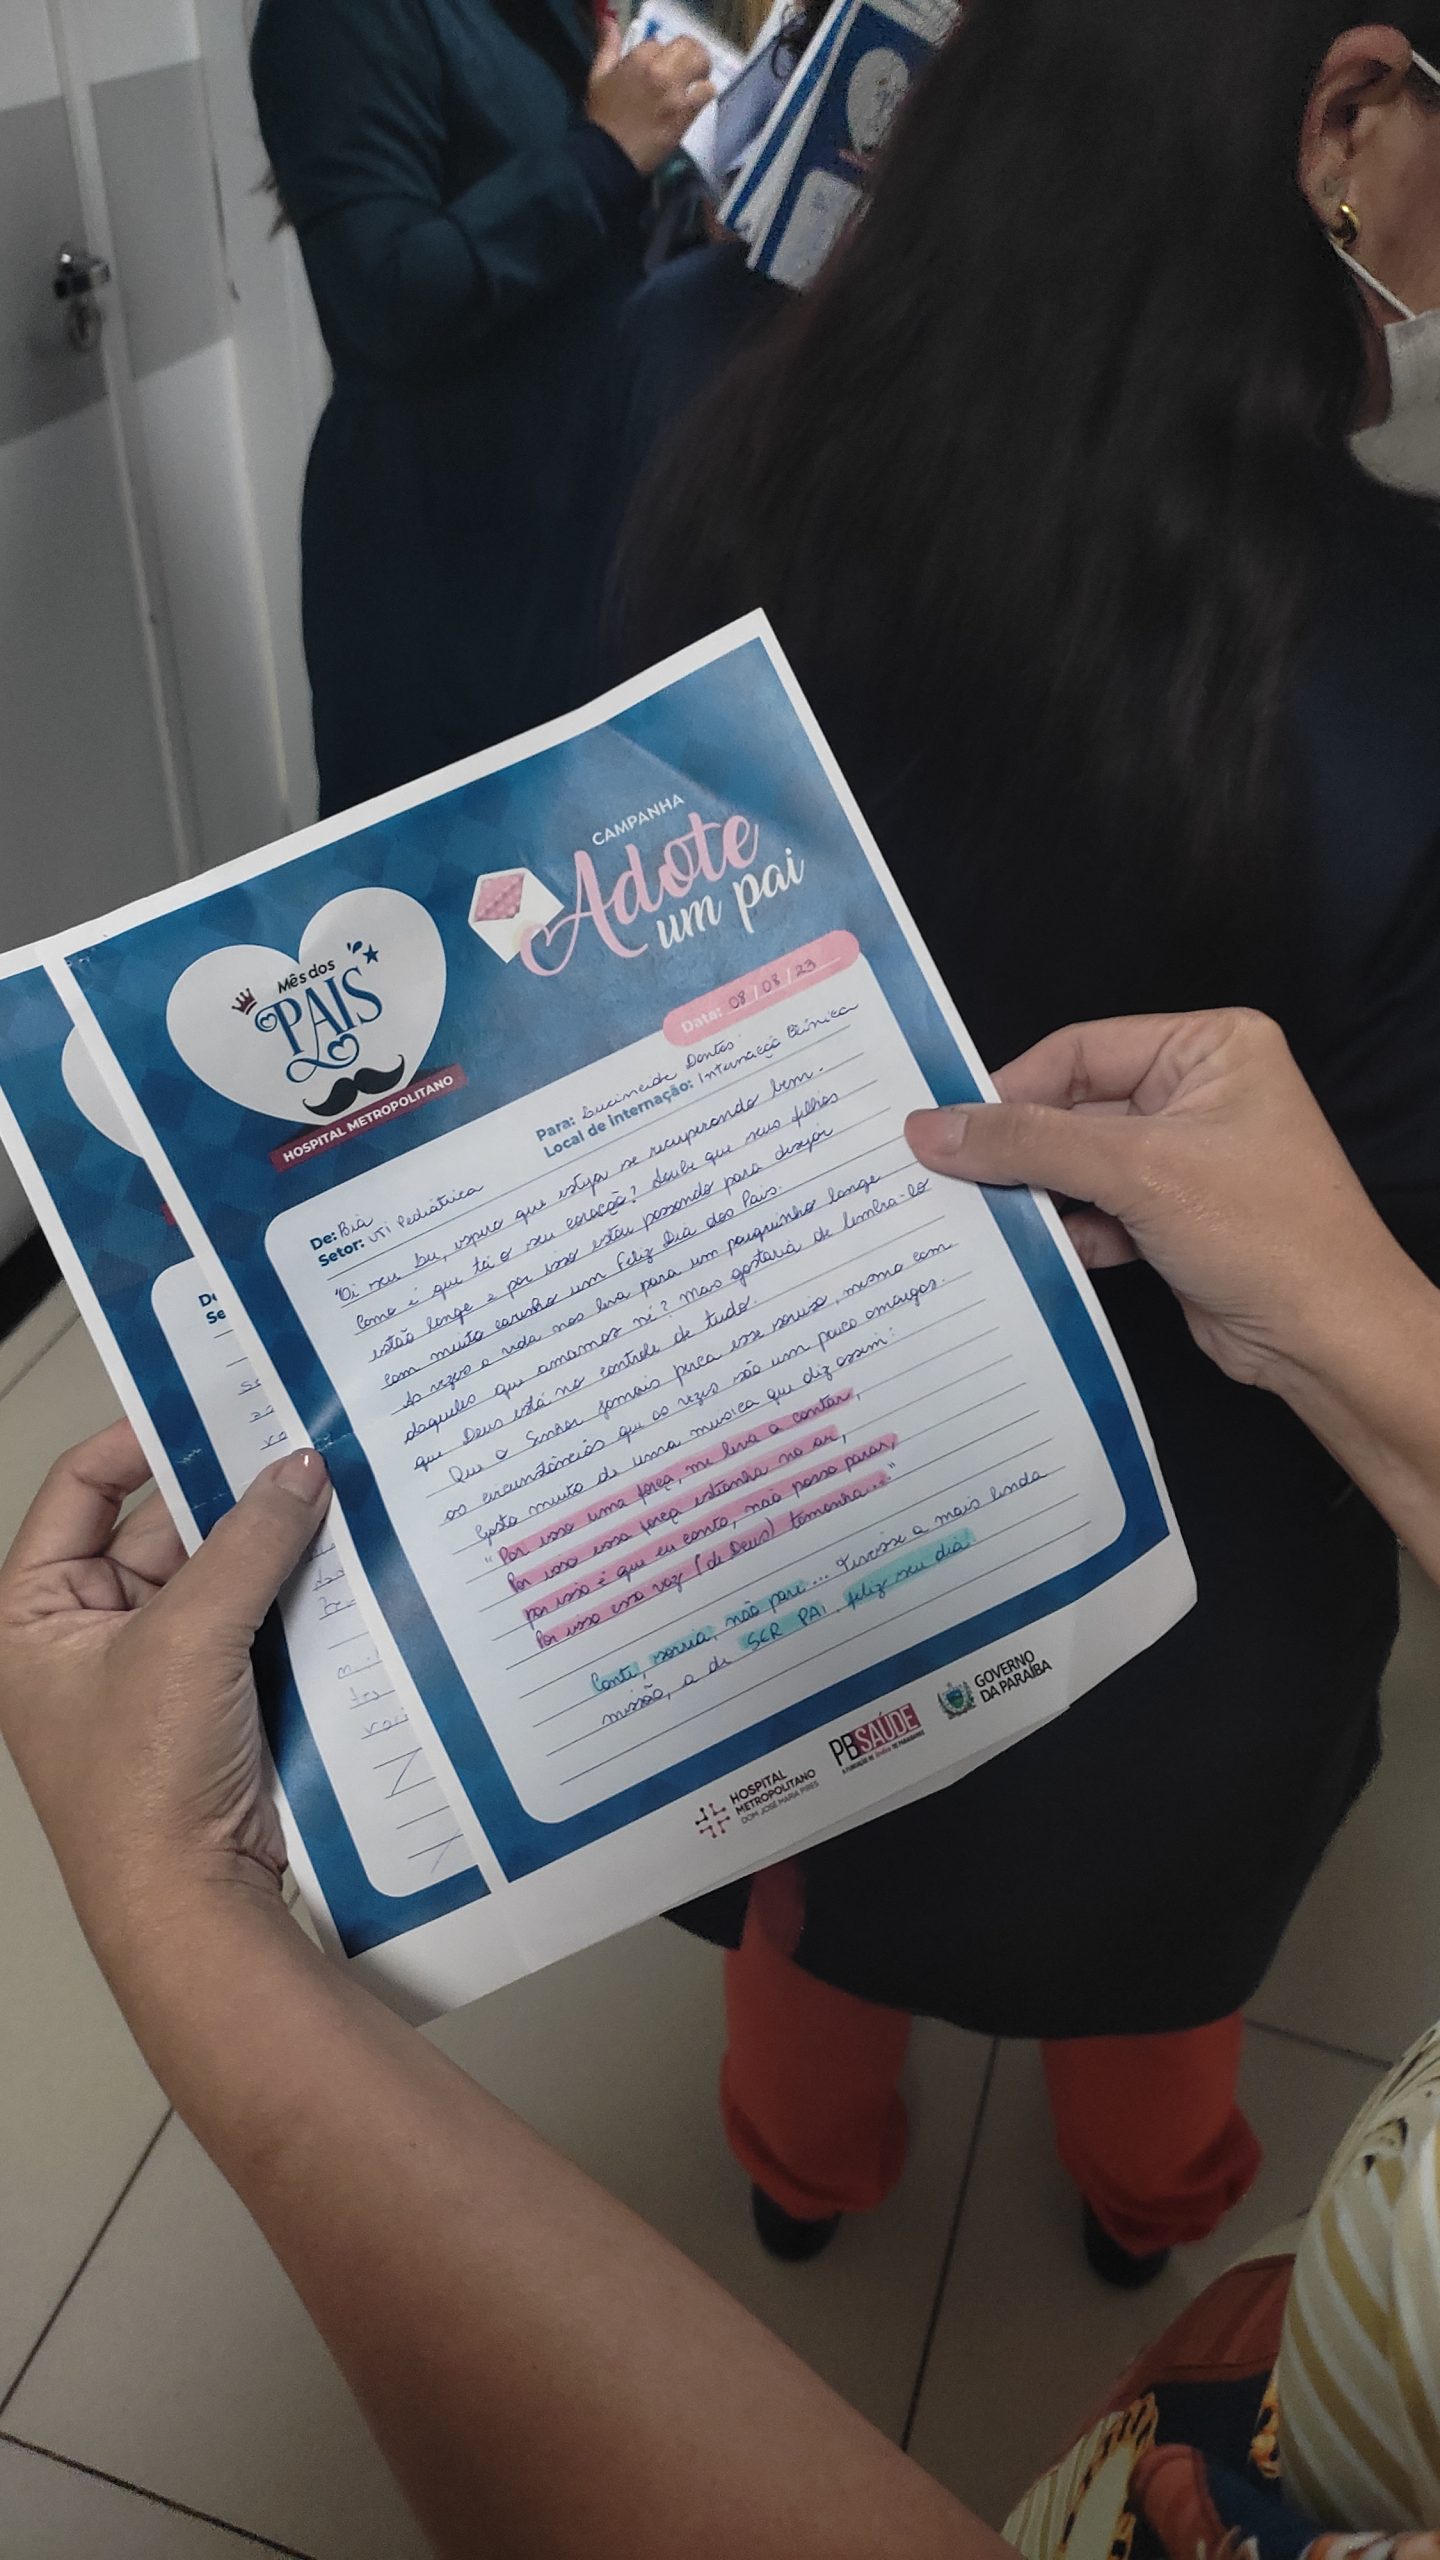 CAMPANHA
Adote
um pai
Mês dos
PAIS
HOSPITAL METROPOLITANO
Data: 08/08/23
Para: Lucineide Dantas
Local de internação: Internação Clínica
De: Bia
Setor: UTI Pediátrica
"Oi seu espero que esteja se recuperando bem.
Como é que tá o seu coração? Soube que seus filhos
estão longe e por isso estou passando para desejar
com muito carinho um Feliz Dia dos Pais.
As vezes a vida nos leva para um pouquinho longe
daqueles que amamos né? Mas gostaria de lembra-lo
que Deus está no controle de tudo.
Que o Senhor jamais perca esse sorriso, mesmo com
as circunstâncias que as vezes são um pouco amargas.
Gosto muito de uma música que diz assim:
"Por isso uma força, me leva a cantar,
Por isso essa força estranha no ar,
por isso é que eu canto, não posso parar,
Por isso essa voz (de Deus) tamanha..."
Cante, sorria, não pare... Tivesse a mais linda
missão, a de SER PAI. feliz seu dia
HOSPITAL
METROPOLITANO
DOM JOSÉ MARIA PIRES
PBSAÚDE
GOVERNO
DA PARAÍBA